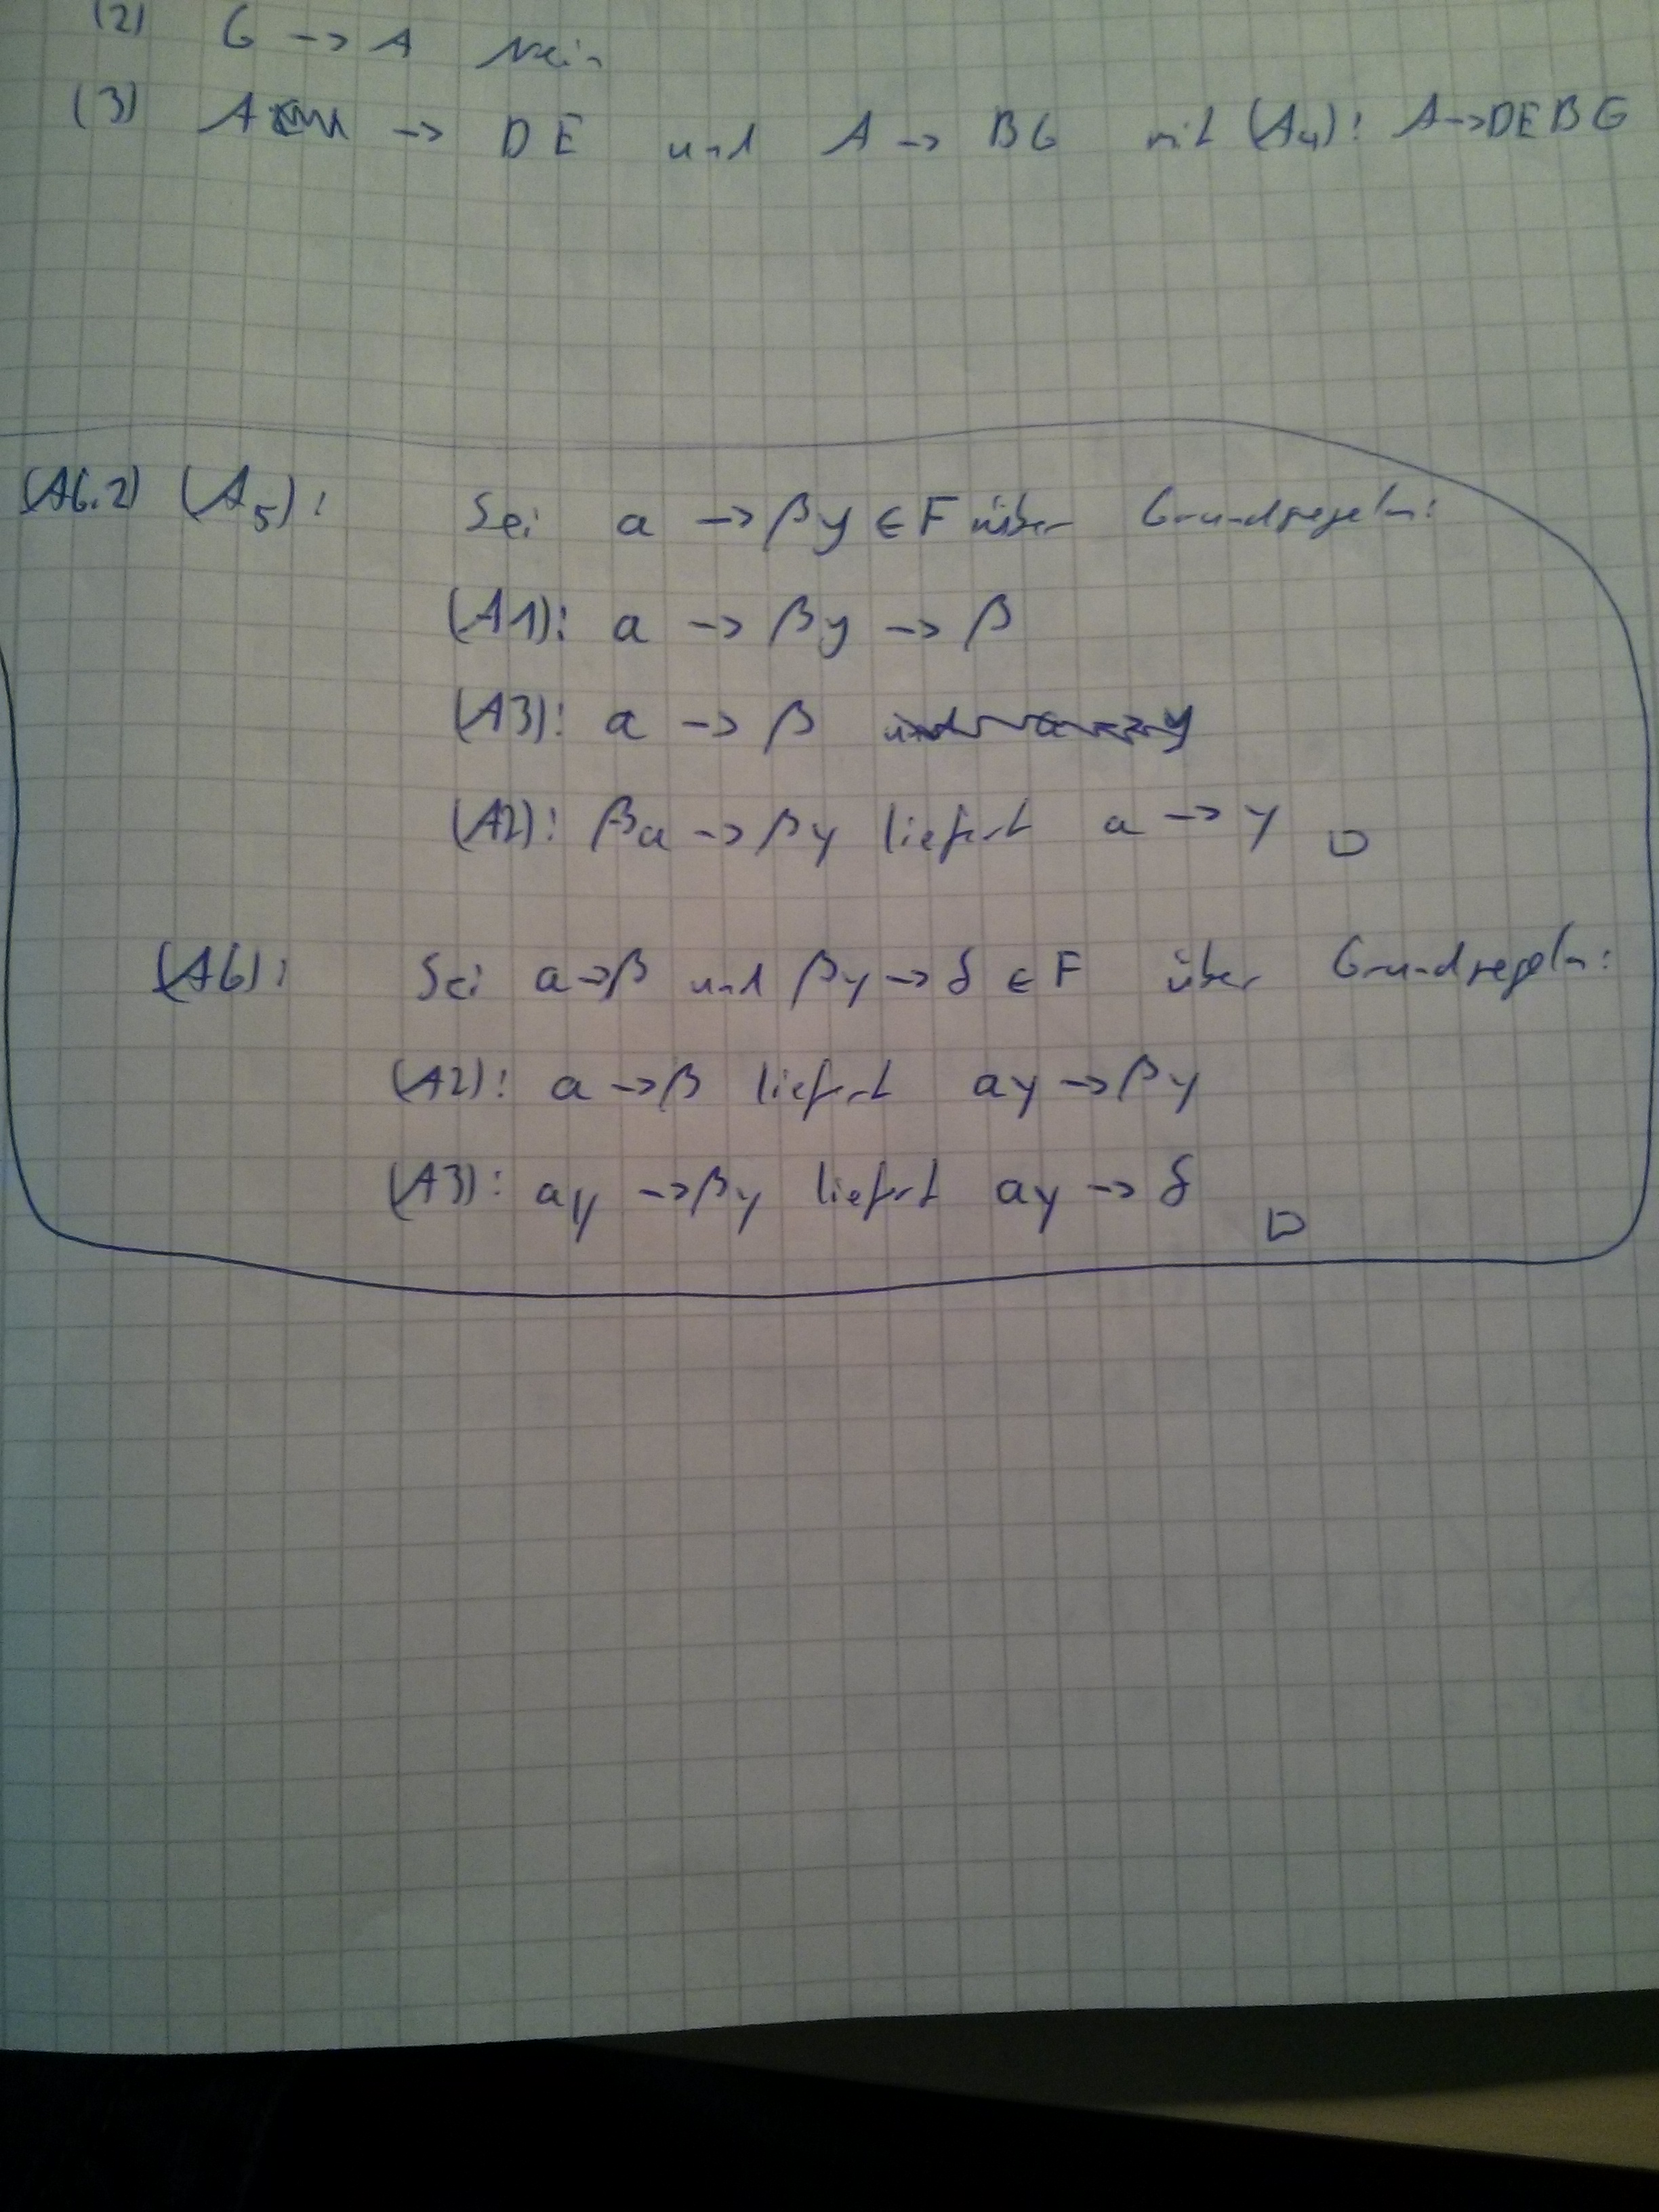 (2) G -> A Nein
(3) A -> DE und A -> BG mit (A4): A->DEBG
(A6.2) (A5): Sei a -> βy ∈ F über Grundregeln:
(A1): a -> βy -> β
(A3): a -> β
(A2): βa -> βy liefert a -> y □
(A6): Sei a->β und βy -> δ ∈ F über Grundregeln:
(A2): a ->β liefert ay ->βy
(A3): ay ->βy liefert ay -> δ □